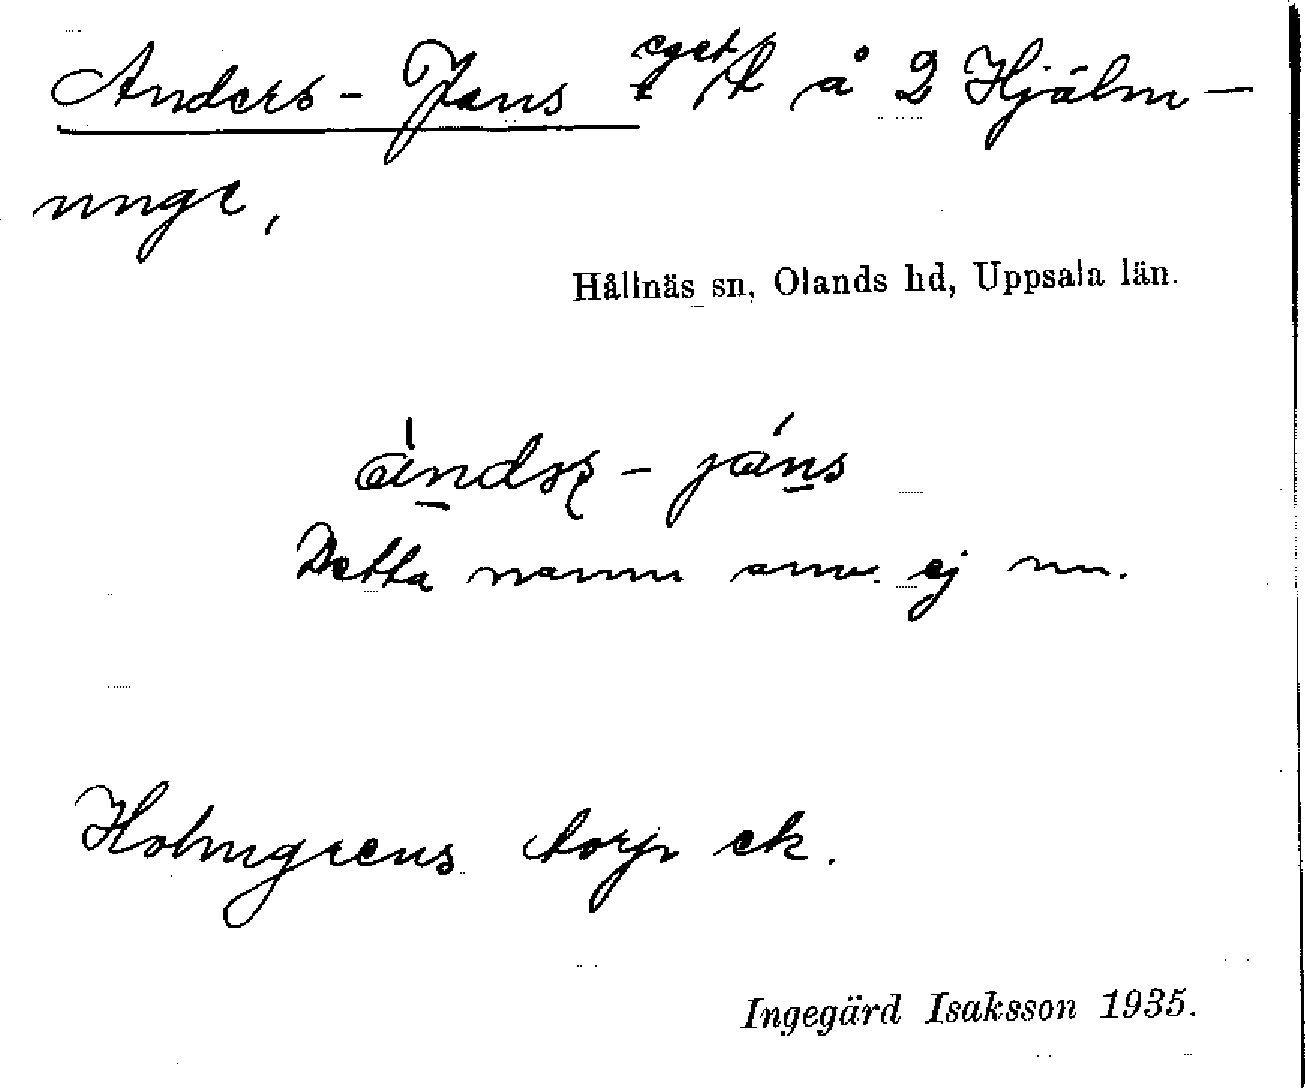 Anders-Jans eget t å 2 Hjälm-
unge,
Hållnäs sn, Olands hd, Uppsala län.
Detta namn anv. ej nu.
Holmgrens torp ek.
Ingegärd Isaksson 1935.